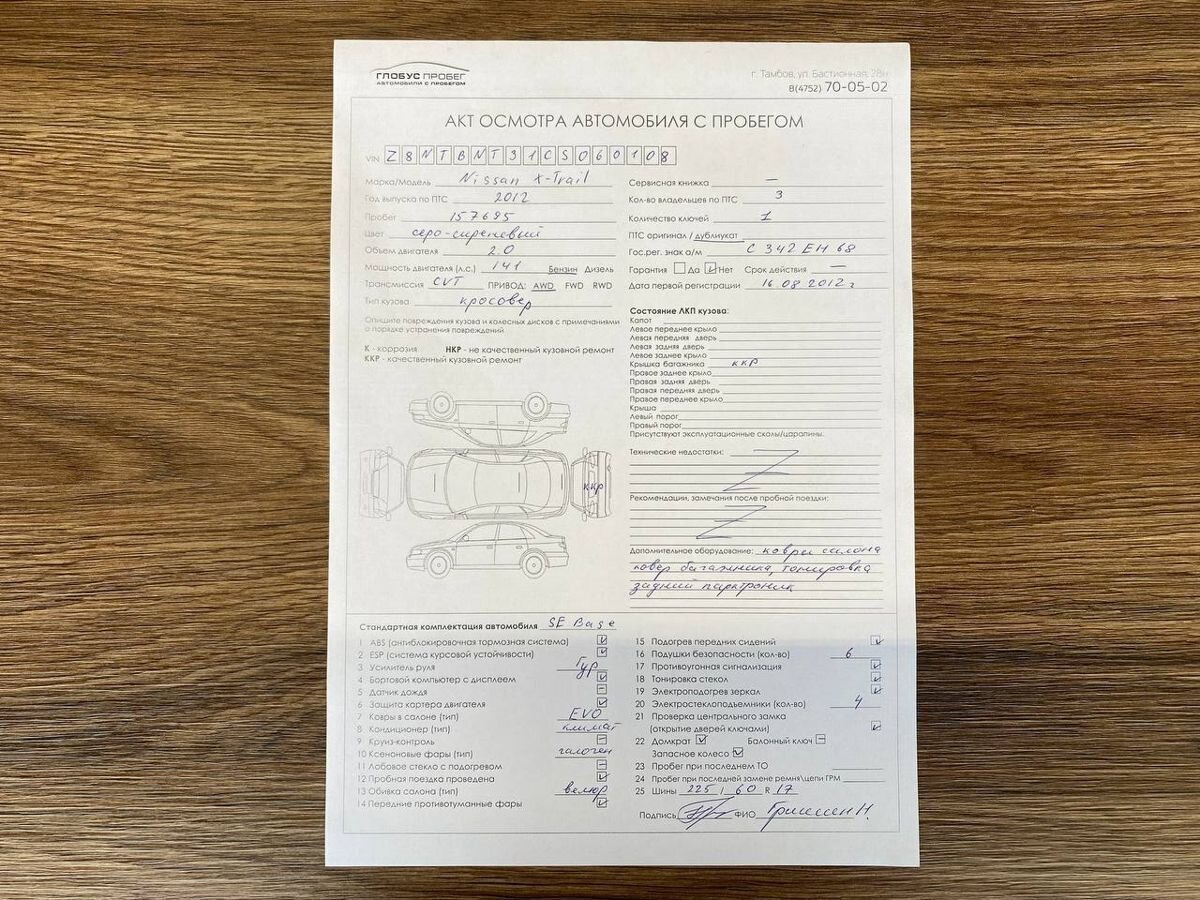 ГЛОБУС ПРОБЕГ
АВТОМОБИЛИ С ПРОБЕГОМ
г. Тамбов, ул. Бастионная, 28н
8(4752) 70-05-02
АКТ ОСМОТРА АВТОМОБИЛЯ С ПРОБЕГОМ
VIN Z8NTBNT31CS060108
Марка/Модель Nissan X-Trail
Год выпуска по ПТС 2012
Пробег 157695
Цвет серо-сиреневый
Объем двигателя 2.0
Мощность двигателя (л.с.) 141 Бензин Дизель
Трансмиссия CVT ПРИВОД: AWD FWD RWD
Тип кузова кросовер
Опишите повреждения кузова и колесных дисков с примечаниями
о порядке устранения повреждений
К - коррозия НКР - не качественный кузовной ремонт
ККР - качественный кузовной ремонт
ккр
Сервисная книжка —
Кол-во владельцев по ПТС 3
Количество ключей 1
ПТС оригинал / дубликат
Гос.рег. знак а/м С 342 ЕН 68
Гарантия Да Нет Срок действия —
Дата первой регистрации 16.08.2012 г
Состояние ЛКП кузова:
Капот
Левое переднее крыло
Левая передняя дверь
Левая задняя дверь
Левое заднее крыло
Крышка багажника ккр
Правое заднее крыло
Правая задняя дверь
Правая передняя дверь
Правое переднее крыло
Крыша
Левый порог
Правый порог
Присутствуют эксплуатационные сколы/царапины.
Технические недостатки:
Рекомендации, замечания после пробной поездки:
Дополнительное оборудование: ковры салона
ковер багажника, тонировка
задний парктроник
Стандартная комплектация автомобиля SE Base
1 ABS (антиблокировочная тормозная система)
2 ESP (система курсовой устойчивости)
3 Усилитель руля Гур
4 Бортовой компьютер с дисплеем
5 Датчик дождя
6 Защита картера двигателя
7 Ковры в салоне (тип) EVO
8 Кондиционер (тип) климат
9 Круиз-контроль
10 Ксеноновые фары (тип) галоген
11 Лобовое стекло с подогревом
12 Пробная поездка проведена
13 Обивка салона (тип) велюр
14 Передние противотуманные фары
15 Подогрев передних сидений
16 Подушки безопасности (кол-во) 6
17 Противоугонная сигнализация
18 Тонировка стекол
19 Электроподогрев зеркал
20 Электростеклоподъемники (кол-во) 4
21 Проверка центрального замка
(открытие дверей ключами)
22 Домкрат Балонный ключ
Запасное колесо
23 Пробег при последнем ТО
24 Пробег при последней замене ремня\цепи ГРМ
25 Шины 225 / 60 R 17
Подпись ФИО